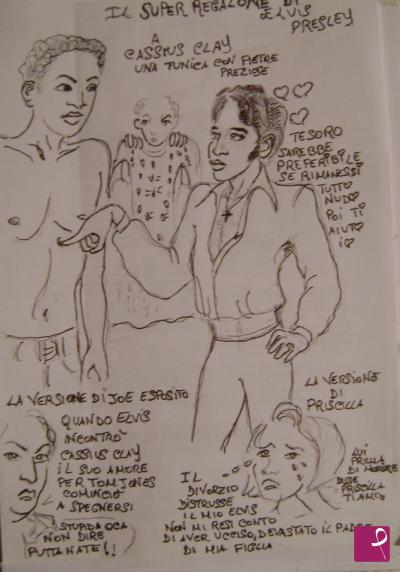 IL SUPER REGALONE DI
ELVIS
PRESLEY
A
CASSIUS CLAY
UNA TUNICA CON PIETRE
PREZIOSE
TESORO
SAREBBE
PREFERIBILE
SE RIMANESSI
TUTTO
NUDO
POI TI
AIUTO
IO
LA VERSIONE DI JOE ESPOSITO
QUANDO ELVIS
INCONTRÒ
CASSIUS CLAY
IL SUO AMORE
PER TOM JONES
COMINCIÒ
A SPEGNERSI
STUPIDA OCA
NON DIRE
PUTTANATE!!
LA VERSIONE
DI
PRISCILLA
IL
DIVORZIO
DISTRUSSE
IL MIO ELVIS
NON MI RESI CONTO
DI AVER UCCISO, DEVASTATO IL PADRE
DI MIA FIGLIA
LUI
PRIMA
DI MORIRE
DISSE
PRISCILLA
TI AMO